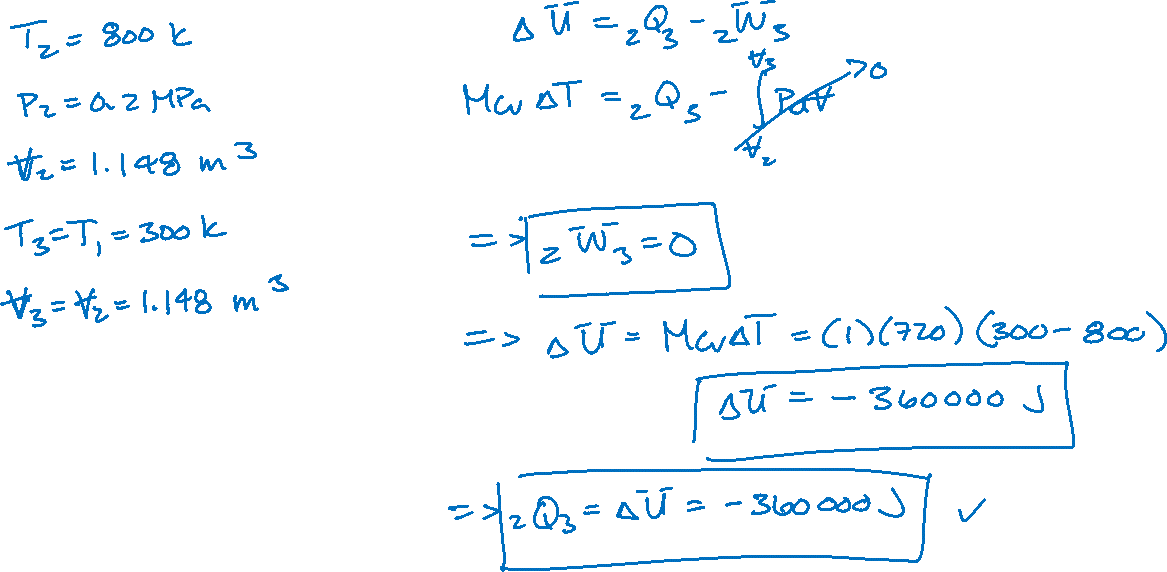 T₂ = 800 K
P₂ = 0.2 MPa
V₂ = 1.148 m³
T₃ = T₁ = 300 K
V₃ = V₂ = 1.148 m³
ΔU = ₂Q₃ - ₂W₃
MCv ΔT = ₂Q₃ - ∫ PdV →0
V₃
V₂
=> ₂W₃ = 0
=> ΔU = MCvΔT = (1)(720)(300-800)
ΔU = - 360000 J
=> ₂Q₃ = ΔU = -360000 J ✓